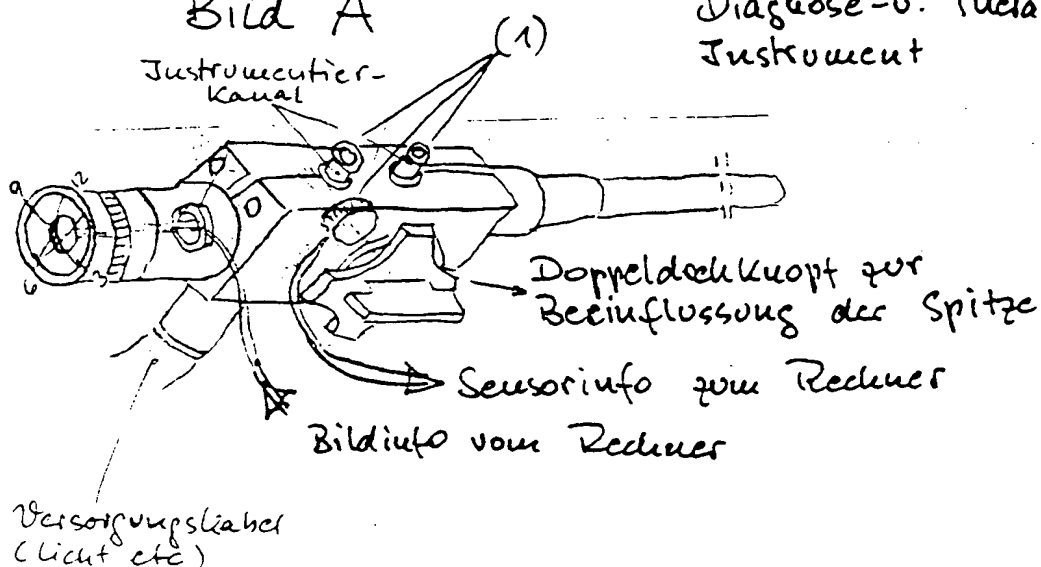 Bild A
Diagnose-u. Thera
Instrument
(1)
Instrumentier-
Kanal
9
12
6
3
Doppeldrehknopf zur
Beeinflussung der Spitze
Sensorinfo zum Rechner
Bildinfo vom Rechner
Versorgungskabel
(Licht etc)